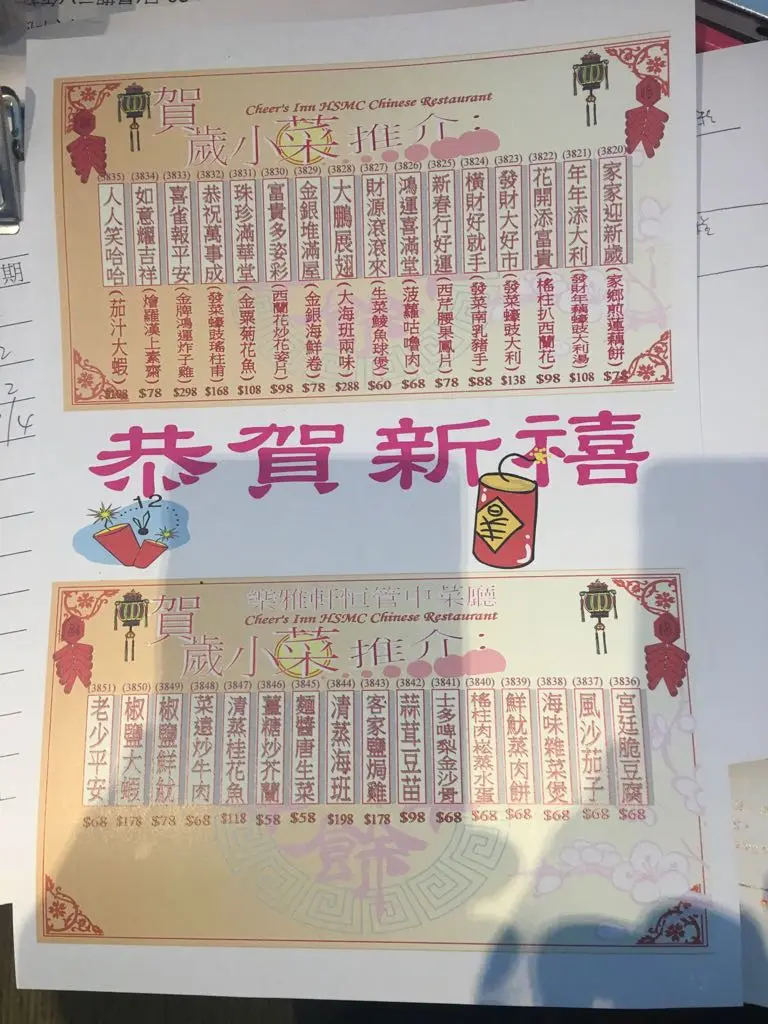 Cheer's Inn HSMC Chinese Restaurant
賀歲小菜推介：
(3820) 家家迎新歲 (家鄉煎蓮藕餅)
(3821) 年年添大利 (發財年藕蠔豉大利湯) $108
(3822) 花開添富貴 (瑤柱扒西蘭花) $98
(3823) 發財大好市 (發菜蠔豉大利) $138
(3824) 橫財好就手 (發菜南乳豬手) $88
(3825) 新春行好運 (西芹腰果鳳片) $78
(3826) 鴻運喜滿堂 (菠蘿咕嚕肉) $68
(3827) 財源滾滾來 (生菜鯪魚球煲) $60
(3828) 大鵬展翅 (大海班兩味) $288
(3829) 金銀堆滿屋 (金銀海鮮卷) $78
(3830) 富貴多姿彩 (西蘭花炒花姿片) $98
(3831) 珠珍滿華堂 (金粟菊花魚) $108
(3832) 恭祝萬事成 (發菜蠔豉瑤柱甫) $168
(3833) 喜雀報平安 (金牌鴻運炸子雞) $298
(3834) 如意耀吉祥 (燴羅漢上素齋) $78
(3835) 人人笑哈哈 (茄汁大蝦)
恭賀新禧
12
春
樂雅軒恒管中菜廳
Cheer's Inn HSMC Chinese Restaurant
賀歲小菜推介：
(3836) 宮廷脆豆腐 $68
(3837) 風沙茄子 $68
(3838) 海味雜菜煲 $68
(3839) 鮮魷蒸肉餅 $68
(3840) 瑤柱肉崧蒸水蛋 $68
(3841) 士多啤梨金沙骨 $68
(3842) 蒜茸豆苗 $98
(3843) 客家鹽焗雞 $178
(3844) 清蒸海班 $198
(3845) 麵醬唐生菜 $58
(3846) 薑糖炒芥蘭 $58
(3847) 清蒸桂花魚 $118
(3848) 菜遠炒牛肉 $68
(3849) 椒鹽鮮魷 $78
(3850) 椒鹽大蝦 $178
(3851) 老少平安 $68
期